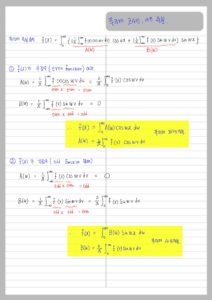 푸리에 코사인, 사인 적분
푸리에 적분 f(x) = ∫₀^∞ { [1/π ∫ f(v) cos wv dv] cos wx + [1/π ∫ f(v) sin wv dv] sin wx }
A(w) B(w)
① f(x)가 우함수 (even function) 일 때
A(w) = 1/π ∫ f(v) cos wv dv = 2/π ∫₀^∞ f(v) cos wv dv
even x even = even
B(w) = 1/π ∫ f(v) sin wv dv = 0
even x odd = odd
∴ f(x) = ∫₀^∞ A(w) cos wx dw
A(w) = 2/π ∫₀^∞ f(v) cos wv dv
② f(x)가 기함수 (odd function) 일 때
A(w) = 1/π ∫ f(v) cos wv dv = 0
odd x even = odd
B(w) = 1/π ∫ f(v) sin wv dv = 2/π ∫₀^∞ f(v) sin wv dv
odd x odd = even
∴ f(x) = ∫₀^∞ B(w) sin wx dw
B(w) = 2/π ∫₀^∞ f(v) sin wv dv